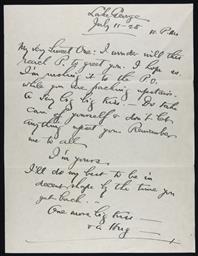 Lake George
July 11-28 10 P.M.
My very Sweet One: I wonder will this
reach P. to greet you. I hope so.
I'm rushing it to the P.O.
while you are packing upstairs.
A very big big kiss — Do take
care of yourself & don't let
anything upset you. Remember
me to all
I'm yours.
I'll do my best to be in
decent shape by the time you
get back. —
One more big kiss —
& a Hug —